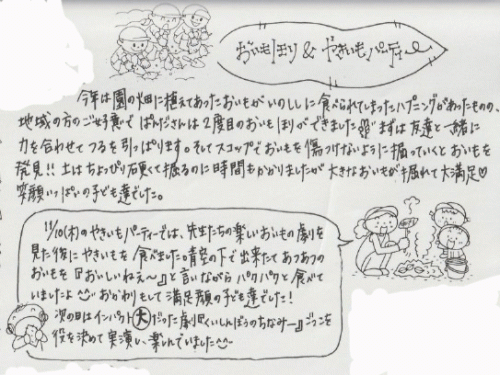 おいもほり & やきいもパーティー
今年は園の畑に植えてあったおいもがいのししに食べられてしまったハプニングがあったものの、
地域の方のご好意で ぱんださんは2度目のおいもほりができました まずは友達と一緒に
力を合わせてつるを引っぱります。そしてスコップでおいもを傷つけないように掘っていくとおいもを
発見!! 土はちょっぴり硬くて掘るのに時間もかかりましたが大きなおいもが掘れて大満足♡
笑顔いっぱいの子ども達でした。
11/10(木)のやきいもパーティーでは、先生たちの楽しいおいもの劇を
見た後にやきいもを食べました。青空の下で出来たてあつあつの
おいもを『おいしいねぇ〜』と言いながらパクパクと食べて
いましたよ おかわりもして満足顔の子ども達でした!
次の日はインパクト大だった劇『くいしんぼうのちなみー』ごっこを
役を決めて実演し、楽しんでいました